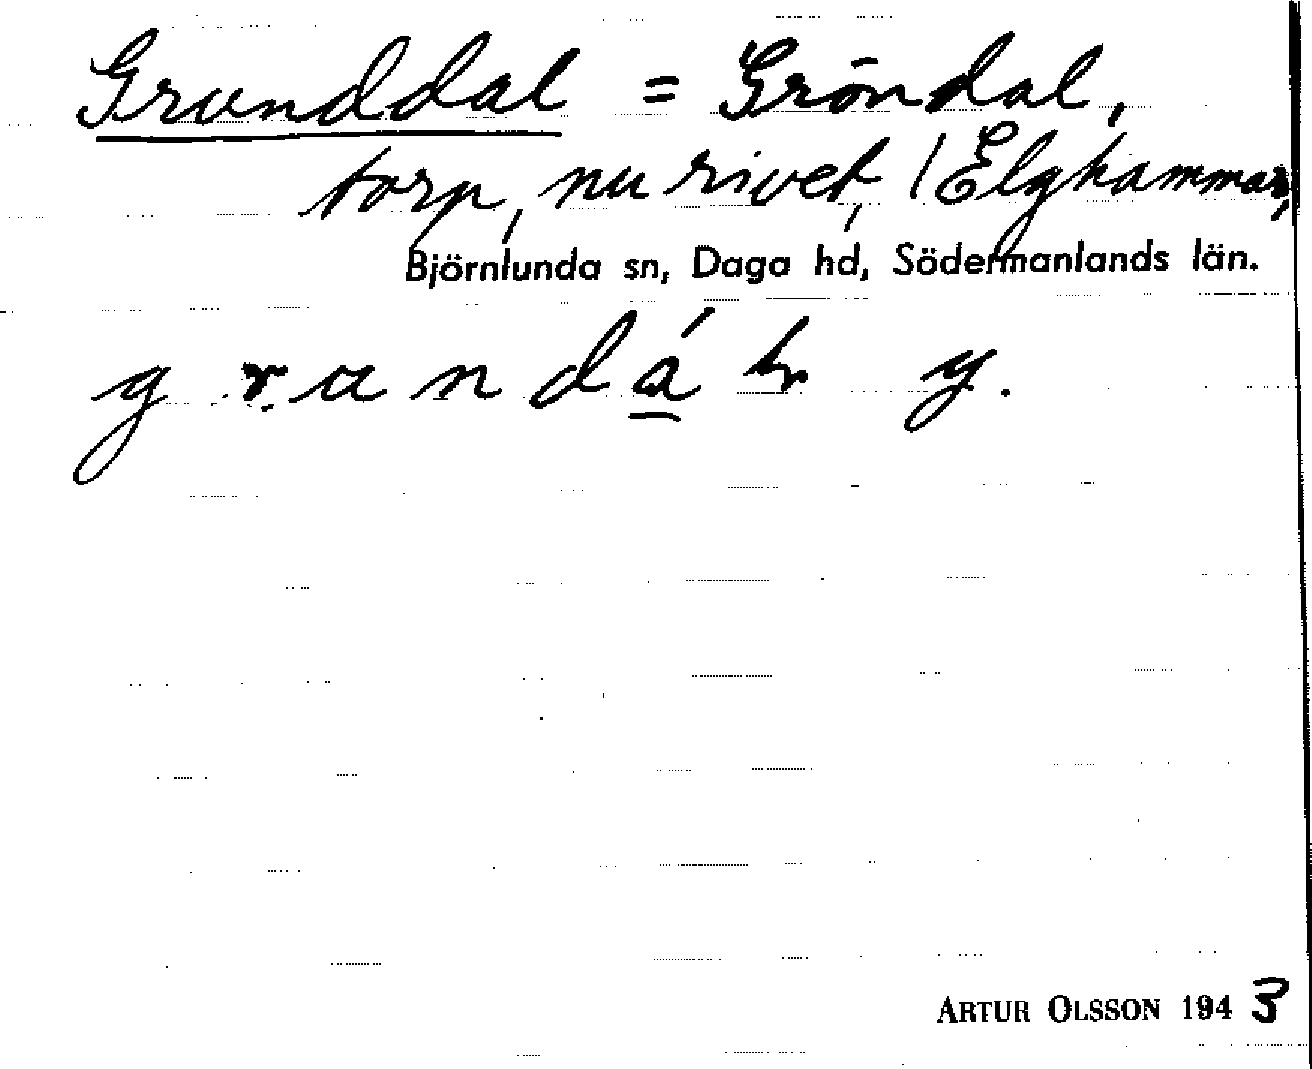 Grunddal = Gröndal,
torp, nu rivet, / Elghammar,
Björnlunda sn, Daga hd, Södermanlands län.
ARTUR OLSSON 1943